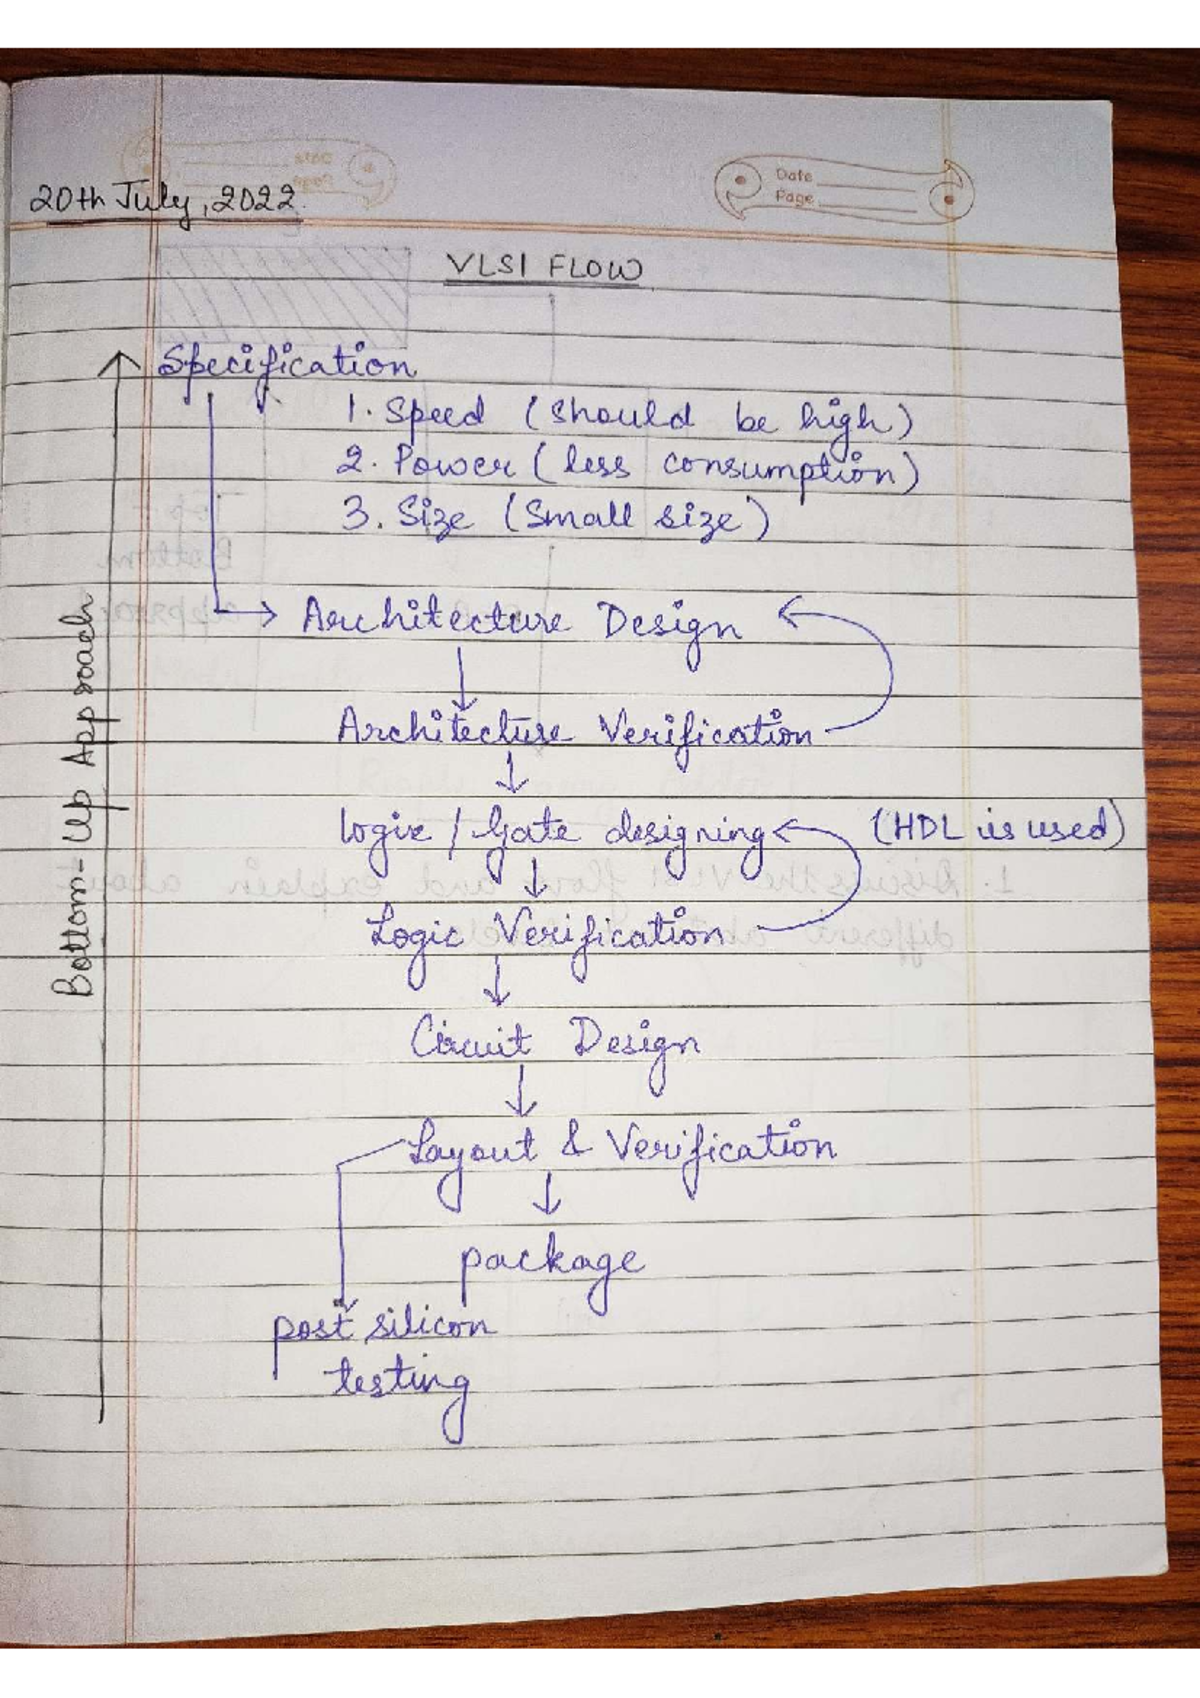 Date
Page
20th July, 2022.
VLSI FLOW
Specification
1. Speed (should be high)
2. Power (less consumption)
3. Size (Small size)
Architecture Design
Architecture Verification
Logic / Gate designing (HDL is used)
Logic Verification
Circuit Design
Layout & Verification
package
post silicon
testing
Bottom-Up Approach